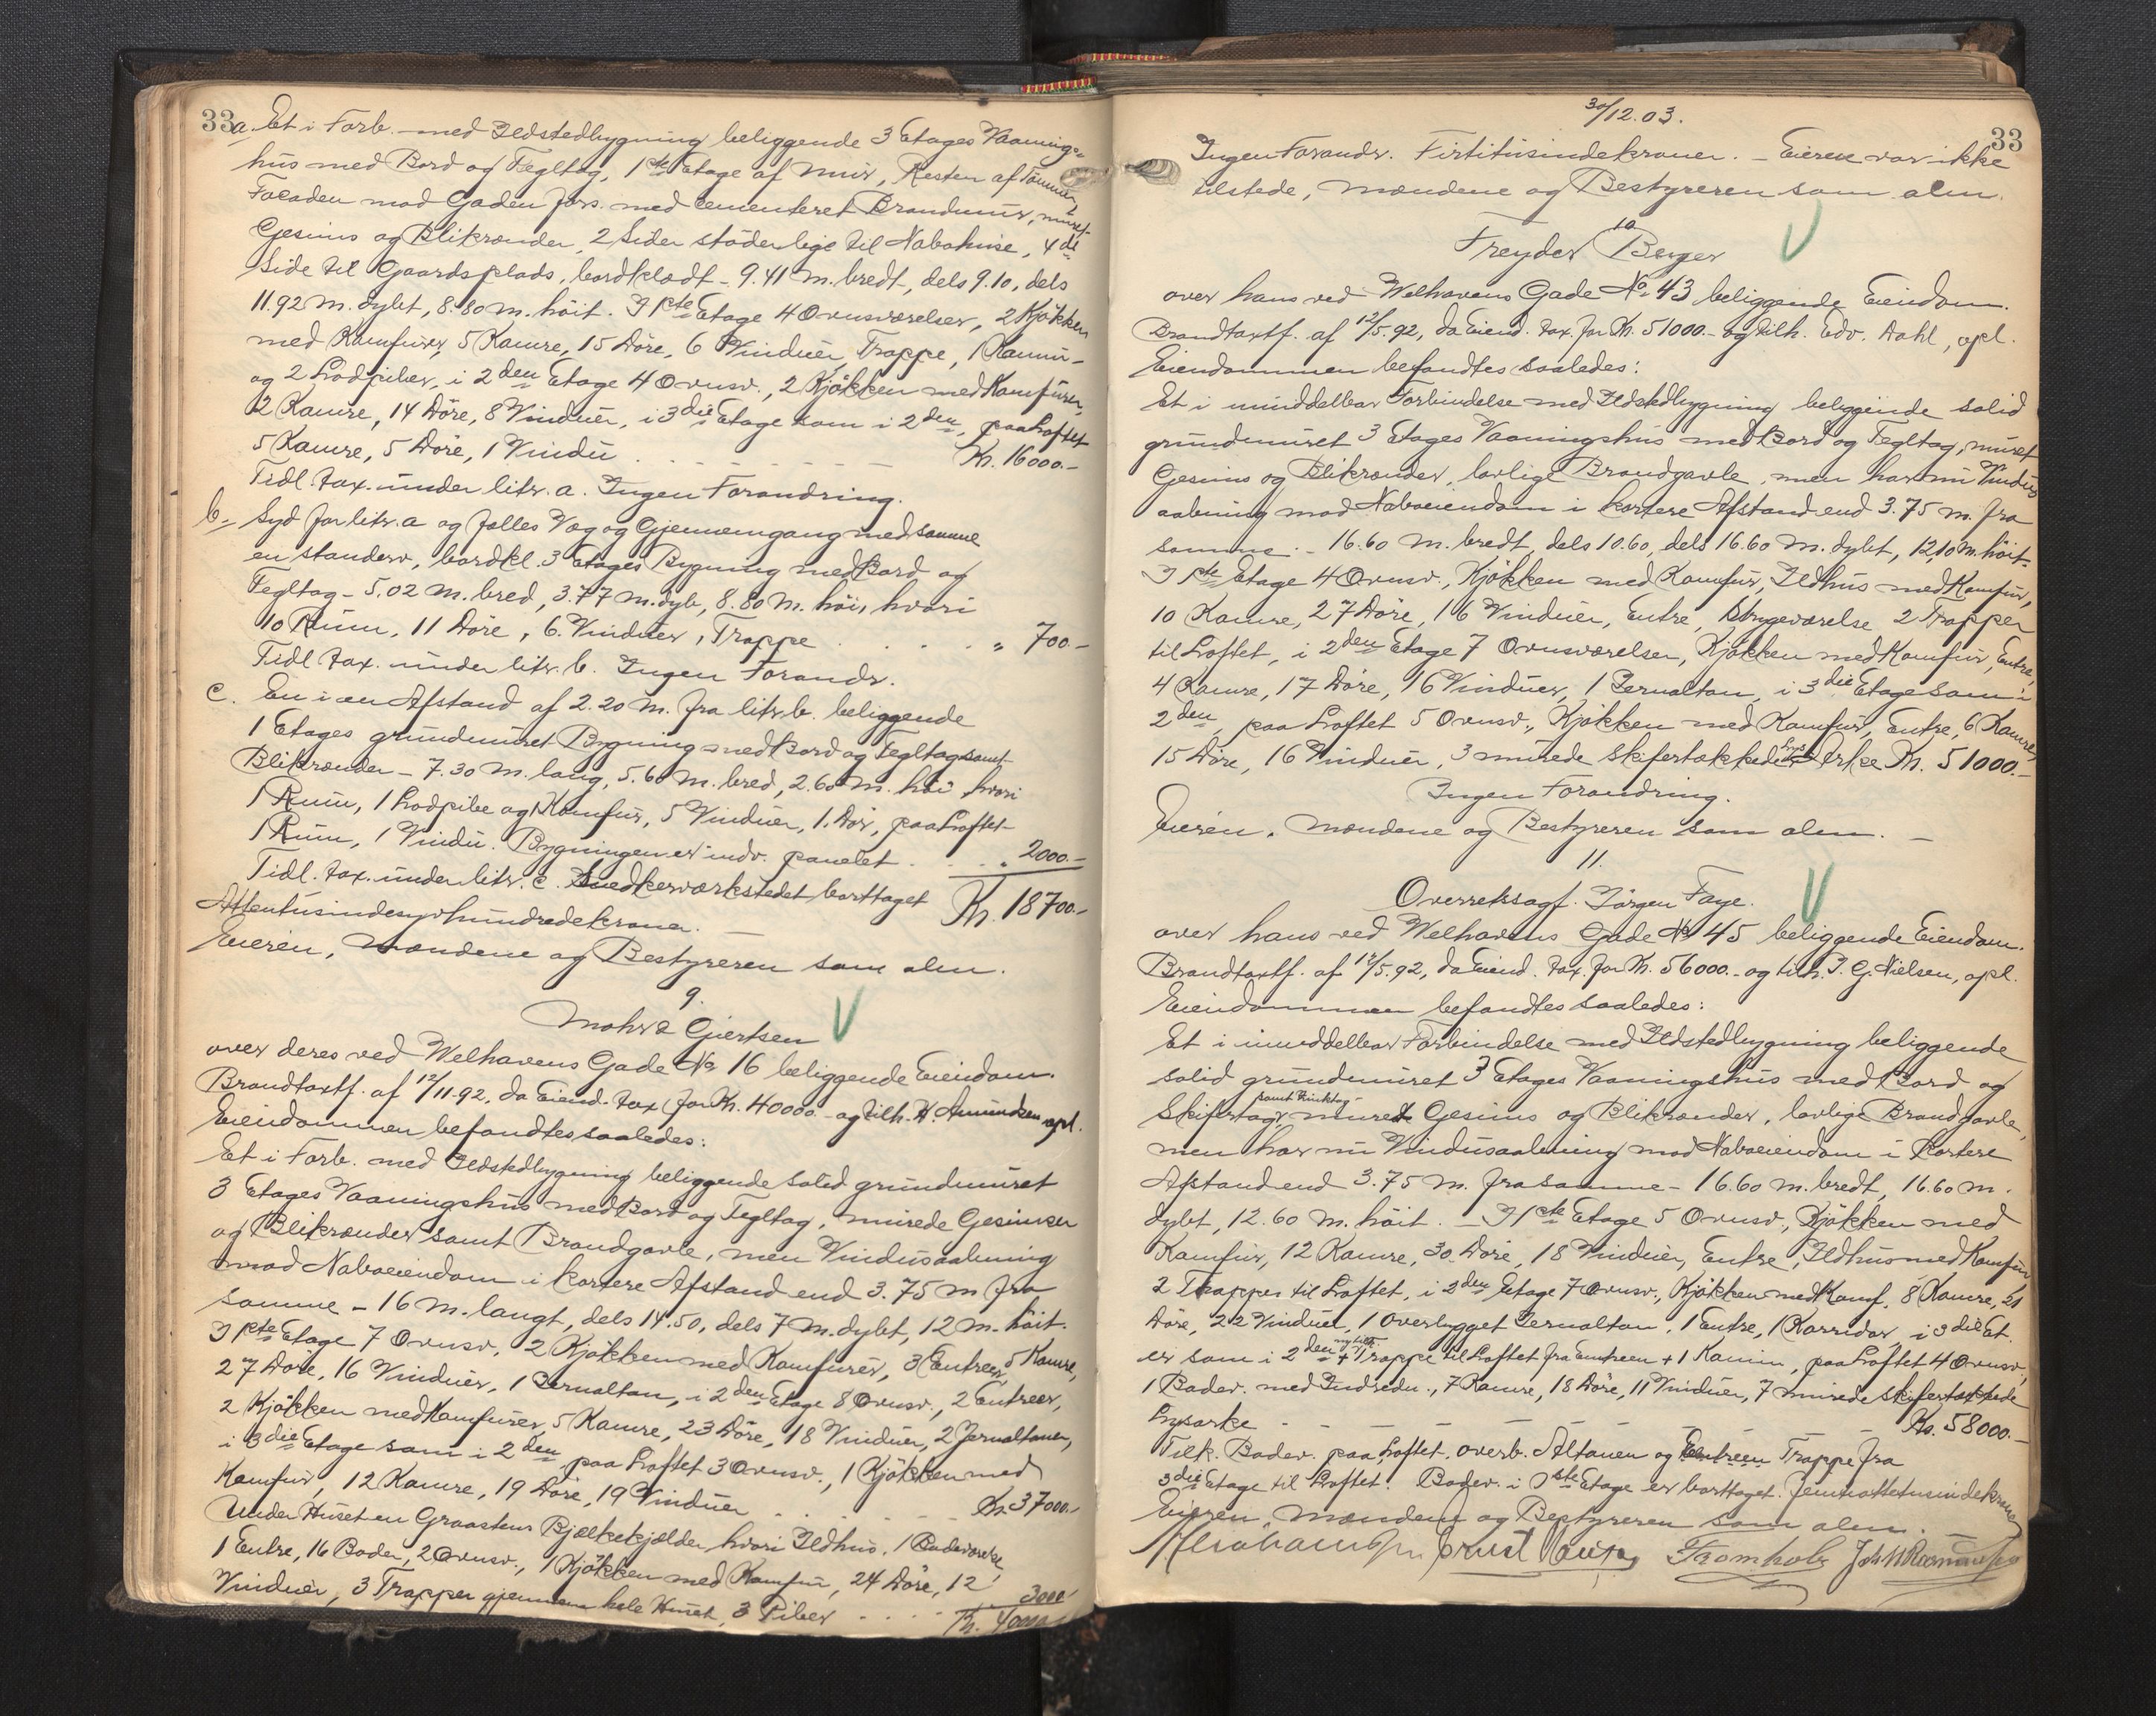 33
a. Et i Forb. med Ildstedbygning beliggende 3 Etages Vaanings-
hus med Bord og Tegltag, 1ste Etage af Mur, Resten af Tømmer,
Facaden mod Gaden fors. med cementeret Brandmur, muret
Gesims og Blikrender, 2 Sider støder lige til Nabohuse, 4de
Side til Gaardsplads, bordklædt - 9.41 m. bredt, dels 9.10, dels
11.92 m. dybt, 8.80 m. høit. I 1ste Etage 4 Ovnsværelser, 2 Kjøkken
med Komfurer, 5 Kamre, 15 Døre, 6 Vinduer, Trappe, 1 Kamin
og 2 Lodpiber, i 2den Etage 4 Ovnsv., 2 Kjøkken med Komfurer,
2 Kamre, 14 Døre, 8 Vinduer, i 3die Etage som i 2den, paa Loftet
5 Kamre, 5 Døre, 1 Vindu . . . Kr. 16000.-
Tidl. tax. under litr. a. Ingen Forandring.
b. Syd for litr. a og fælles Væg og Gjennemgang med samme
en standerv., bordkl. 3 Etages Bygning med Bord og
Tegltag - 5.02 m. bred, 3.77 m. dyb, 8.80 m. høi, hvori
10 Rum, 11 Døre, 6 Vinduer, 1 Trappe . . . . „ 700.-
Tidl. tax. under litr. b. Ingen Forandr.
c. En i en Afstand af 2.20 m. fra litr. b. beliggende
1 Etages grundmuret Bygning med Bord og Tegltag samt
Blikrender - 7.30 m. lang, 5.60 m. bred, 2.60 m. høi hvori
1 Rum, 1 Lodpibe og 1 Komfur, 5 Vinduer, 1 Dør, paa Loftet
1 Rum, 1 Vindu. Bygningen er indv. panelet . . . „ 2000.-
Tidl. tax. under litr. c. Snedkerværkstedet borttaget Kr. 18700.-
Attentusindesyvhundredekroner.
Eieren, Mændene og Bestyreren som alm.
9.
Mohr & Giertsen
over deres ved Welhavens Gade No 16 beliggende Eiendom.
Brandtaxtf. af 12/11.92, da Eiend. tax. for Kr. 40000.- og tilh. H. Amundsen opl.
Eiendommen befandtes saaledes:
Et i Forb. med Ildstedbygning beliggende solid grundmuret
3 Etages Vaaningshus med Bord og Tegltag, murede Gesimser
og Blikrender samt Brandgavle, men Vindusaabning
mod Naboeiendom i kortere Afstand end 3.75 m fra
samme - 16 m. langt, dels 14.50, dels 7 m. dybt, 12 m. høit.
I 1ste Etage 7 Ovnsv. 2 Kjøkken med Komfurer, 3 Entreer, 5 Kamre,
27 Døre, 16 Vinduer, 1 Jernaltan, i 2den Etage 8 Ovnsv., 2 Entreer,
2 Kjøkken med Komfurer, 5 Kamre, 23 Døre, 18 Vinduer, 2 Jernaltaner,
i 3die Etage som i 2den, paa Loftet 3 Ovnsv., 1 Kjøkken med
Komfur, 12 Kamre, 19 Døre, 19 Vinduer . . . Kr. 37000.-
Under Huset en Graastens Bjelkekjelder, hvori Ildhus, 1 Badeværelse,
1 Entre, 16 Boder, 2 Ovnsv., 1 Kjøkken med Komfur, 24 Døre, 12
Vinduer, 3 Trapper gjennem hele Huset, 3 Piber . . . . 3000
Kr. 40000
30/12.03.
33
Ingen Forandr. Firtitusindekroner. - Eierne var ikke
tilstede, Mændene og Bestyreren som alm.
10
Freyder Berger
over hans ved Welhavens Gade No 43 beliggende Eiendom.
Brandtaxtf. af 12/5.92, da Eiend. tax. for Kr. 51000.- og tilh. Edv. Dahl, opl.
Eiendommen befandtes saaledes:
Et i umiddelbar Forbindelse med Ildstedbygning beliggende solid
grundmuret 3 Etages Vaaningshus med Bord og Tegltag, muret
Gesims og Blikrender, lovlige Brandgavle, men har nu Vindus
aabning mod Naboeiendom i kortere Afstand end 3.75 m. fra
samme. - 16.60 m. bredt, dels 10.60, dels 16.60 m. dybt, 12,10 m. høit.
I 1ste Etage 4 Ovnsv., Kjøkken med Komfur, Ildhus med Komfur,
10 Kamre, 27 Døre, 16 Vinduer, Entre, Strygeværelse 2 Trapper
til Loftet, i 2den Etage 7 Ovnsværelser, Kjøkken med Komfur, Entre,
4 Kamre, 17 Døre, 16 Vinduer, 1 Jernaltan, i 3die Etage som i
2den, paa Loftet 5 Ovnsv., Kjøkken med Komfur, Entre, 6 Kamre,
15 Døre, 16 Vinduer, 3 murede skifertækkede Lys Arke Kr. 51000.-
Ingen Forandring.
Eieren, Mændene og Bestyreren som alm. -
11.
Overretssagf. Jørgen Faye.
over hans ved Welhavens Gade No 45 beliggende Eiendom.
Brandtaxtf. af 12/5.92, da Eiend. tax. for Kr. 56000.- og tilh. J. G. Nielsen, opl.
Eiendommen befandtes saaledes:
Et i umiddelbar Forbindelse med Ildstedbygning beliggende
solid grundmuret 3 Etages Vaaningshus med Bord og
Skifertag, samt Zinktag muret Gesims og Blikrender, lovlige Brandgavle,
men har nu Vindusaabning mod Naboeiendom i kortere
Afstand end 3.75 m. fra samme - 16.60 m. bredt, 16.60 m.
dybt, 12.60 m. høit. - I 1ste Etage 5 Ovnsv., Kjøkken med
Komfur, 12 Kamre, 30 Døre, 18 Vinduer, Entre, Ildhus med Komfur
2 Trapper til Loftet, i 2den Etage 7 Ovnsv., Kjøkken med Komf. 8 Kamre, 21
Døre, 22 Vinduer, 1 overbygget Jernaltan, 1 Entre, 1 Korridor, i 3die Et.
er som i 2den + Trappe til Loftet fra Entreen + 1 Kamin, paa Loftet 4 Ovnsv.,
1 Badev. med Indredn., 7 Kamre, 18 Døre, 11 Vinduer, 7 murede skifertækkede
Lysarke - - - - - Kr. 58000.-
Tilk. Badev. paa Loftet, overb. Altanen og Trappe fra
3die Etage til Loftet. Badev. i 1ste Etage er borttaget. Femtiottetusindekroner
Eieren, Mændene og Bestyreren som alm. -
Fromholz